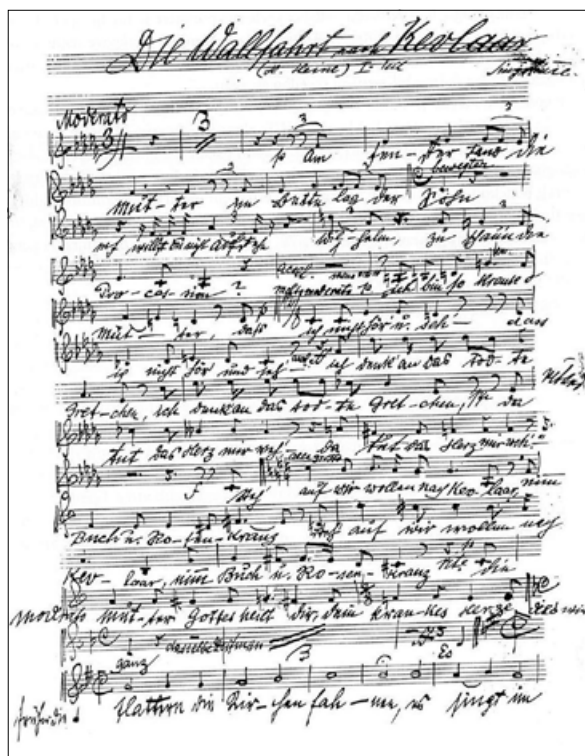 Die Wallfahrt nach Kevlaar
(H. Heine) I. Teil
Singstimme.
Moderato
3
3
3
3
Am Fen-ster stand die
bewegter
3
3
Mut-ter im Bette lag der Sohn
willst du nicht aufstehn Wil-helm, zu schaun die
Pro-ces-sion?
accel.
molto moderato ich bin so krank o
Mut-ter, dass ich nicht hör u. seh- dass
ich nicht hör und seh- ich denk' an das tod-te
Gret-chen, ich denk an das tod-te Gret-chen, da
thut das Herz mir weh' da thut das Herz mir weh'
auf wir wollen nach Kev-laar, nimm
Buch u. Ro-sen-kranz auf wir wollen nach
Kev-laar, nimm Buch u. Rosen-kranz die
moderato Mut-ter Gottes heilt dir dein krankes Herze
dasselbe Zeitmass
ganz
3
Es
flattern die Kir-chenfah-nen, es singt im
früher die